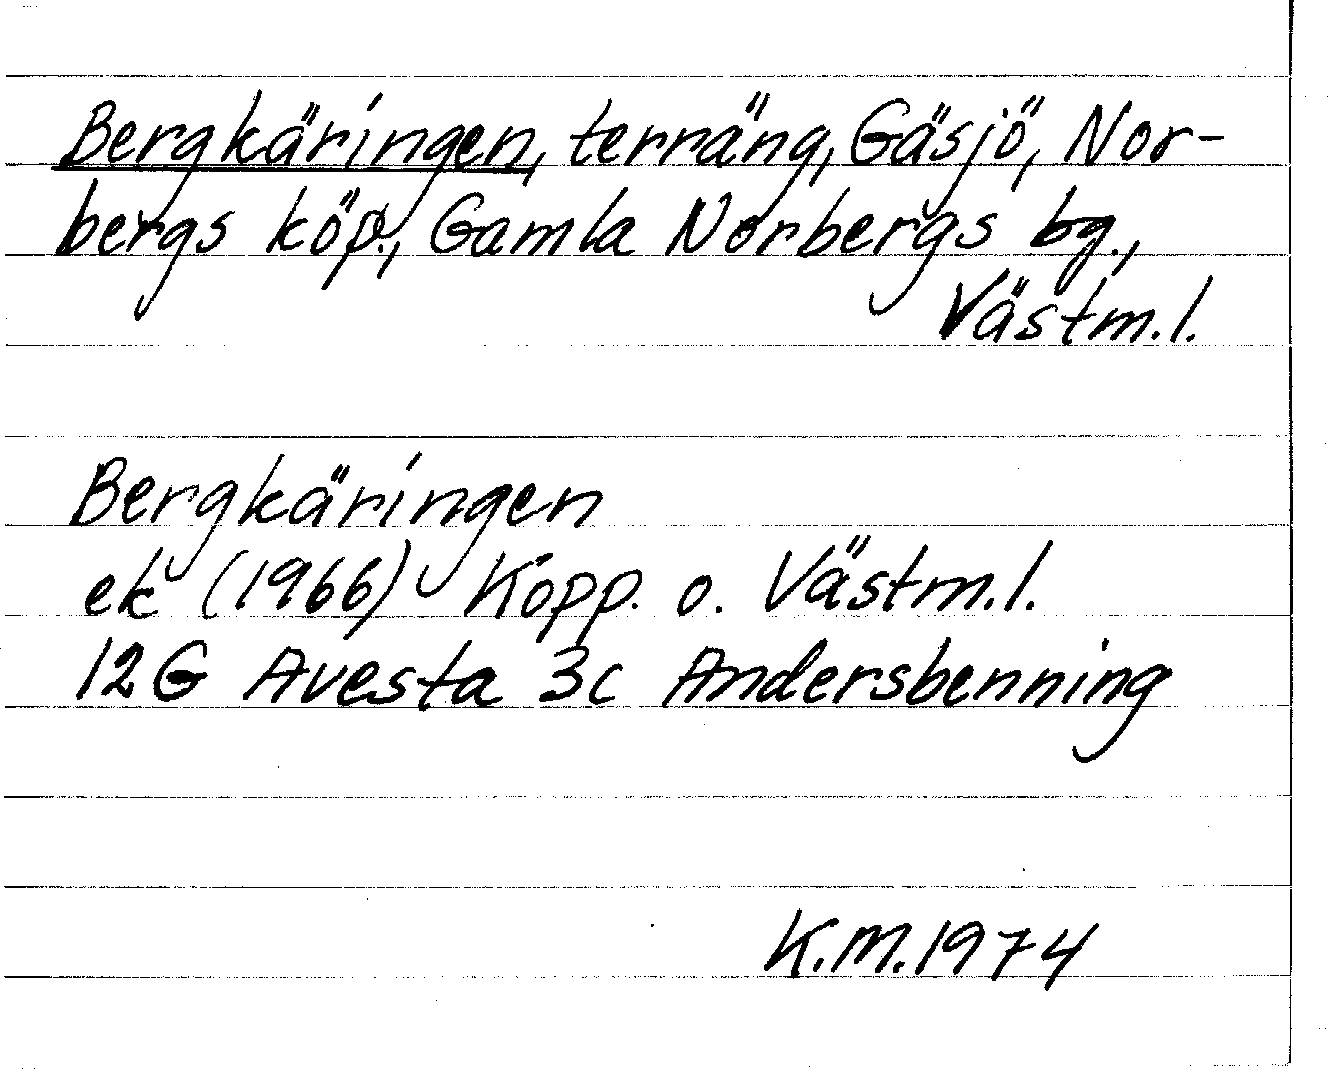 Bergkäringen, terräng, Gäsjö, Nor-
bergs köp., Gamla Norbergs bg.,
Västm.l.
Bergkäringen
ek (1966) Kopp. o. Västm.l.
12G Avesta 3c Andersbenning
K.M.1974